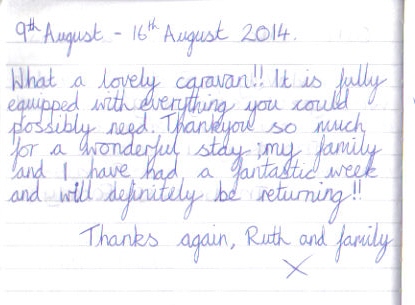 9th August - 16th August 2014.
What a lovely caravan!! It is fully
equipped with everything you could
possibly need. Thankyou so much
for a wonderful stay; my family
and I have had a fantastic week
and will definitely be returning!!
Thanks again, Ruth and family
X